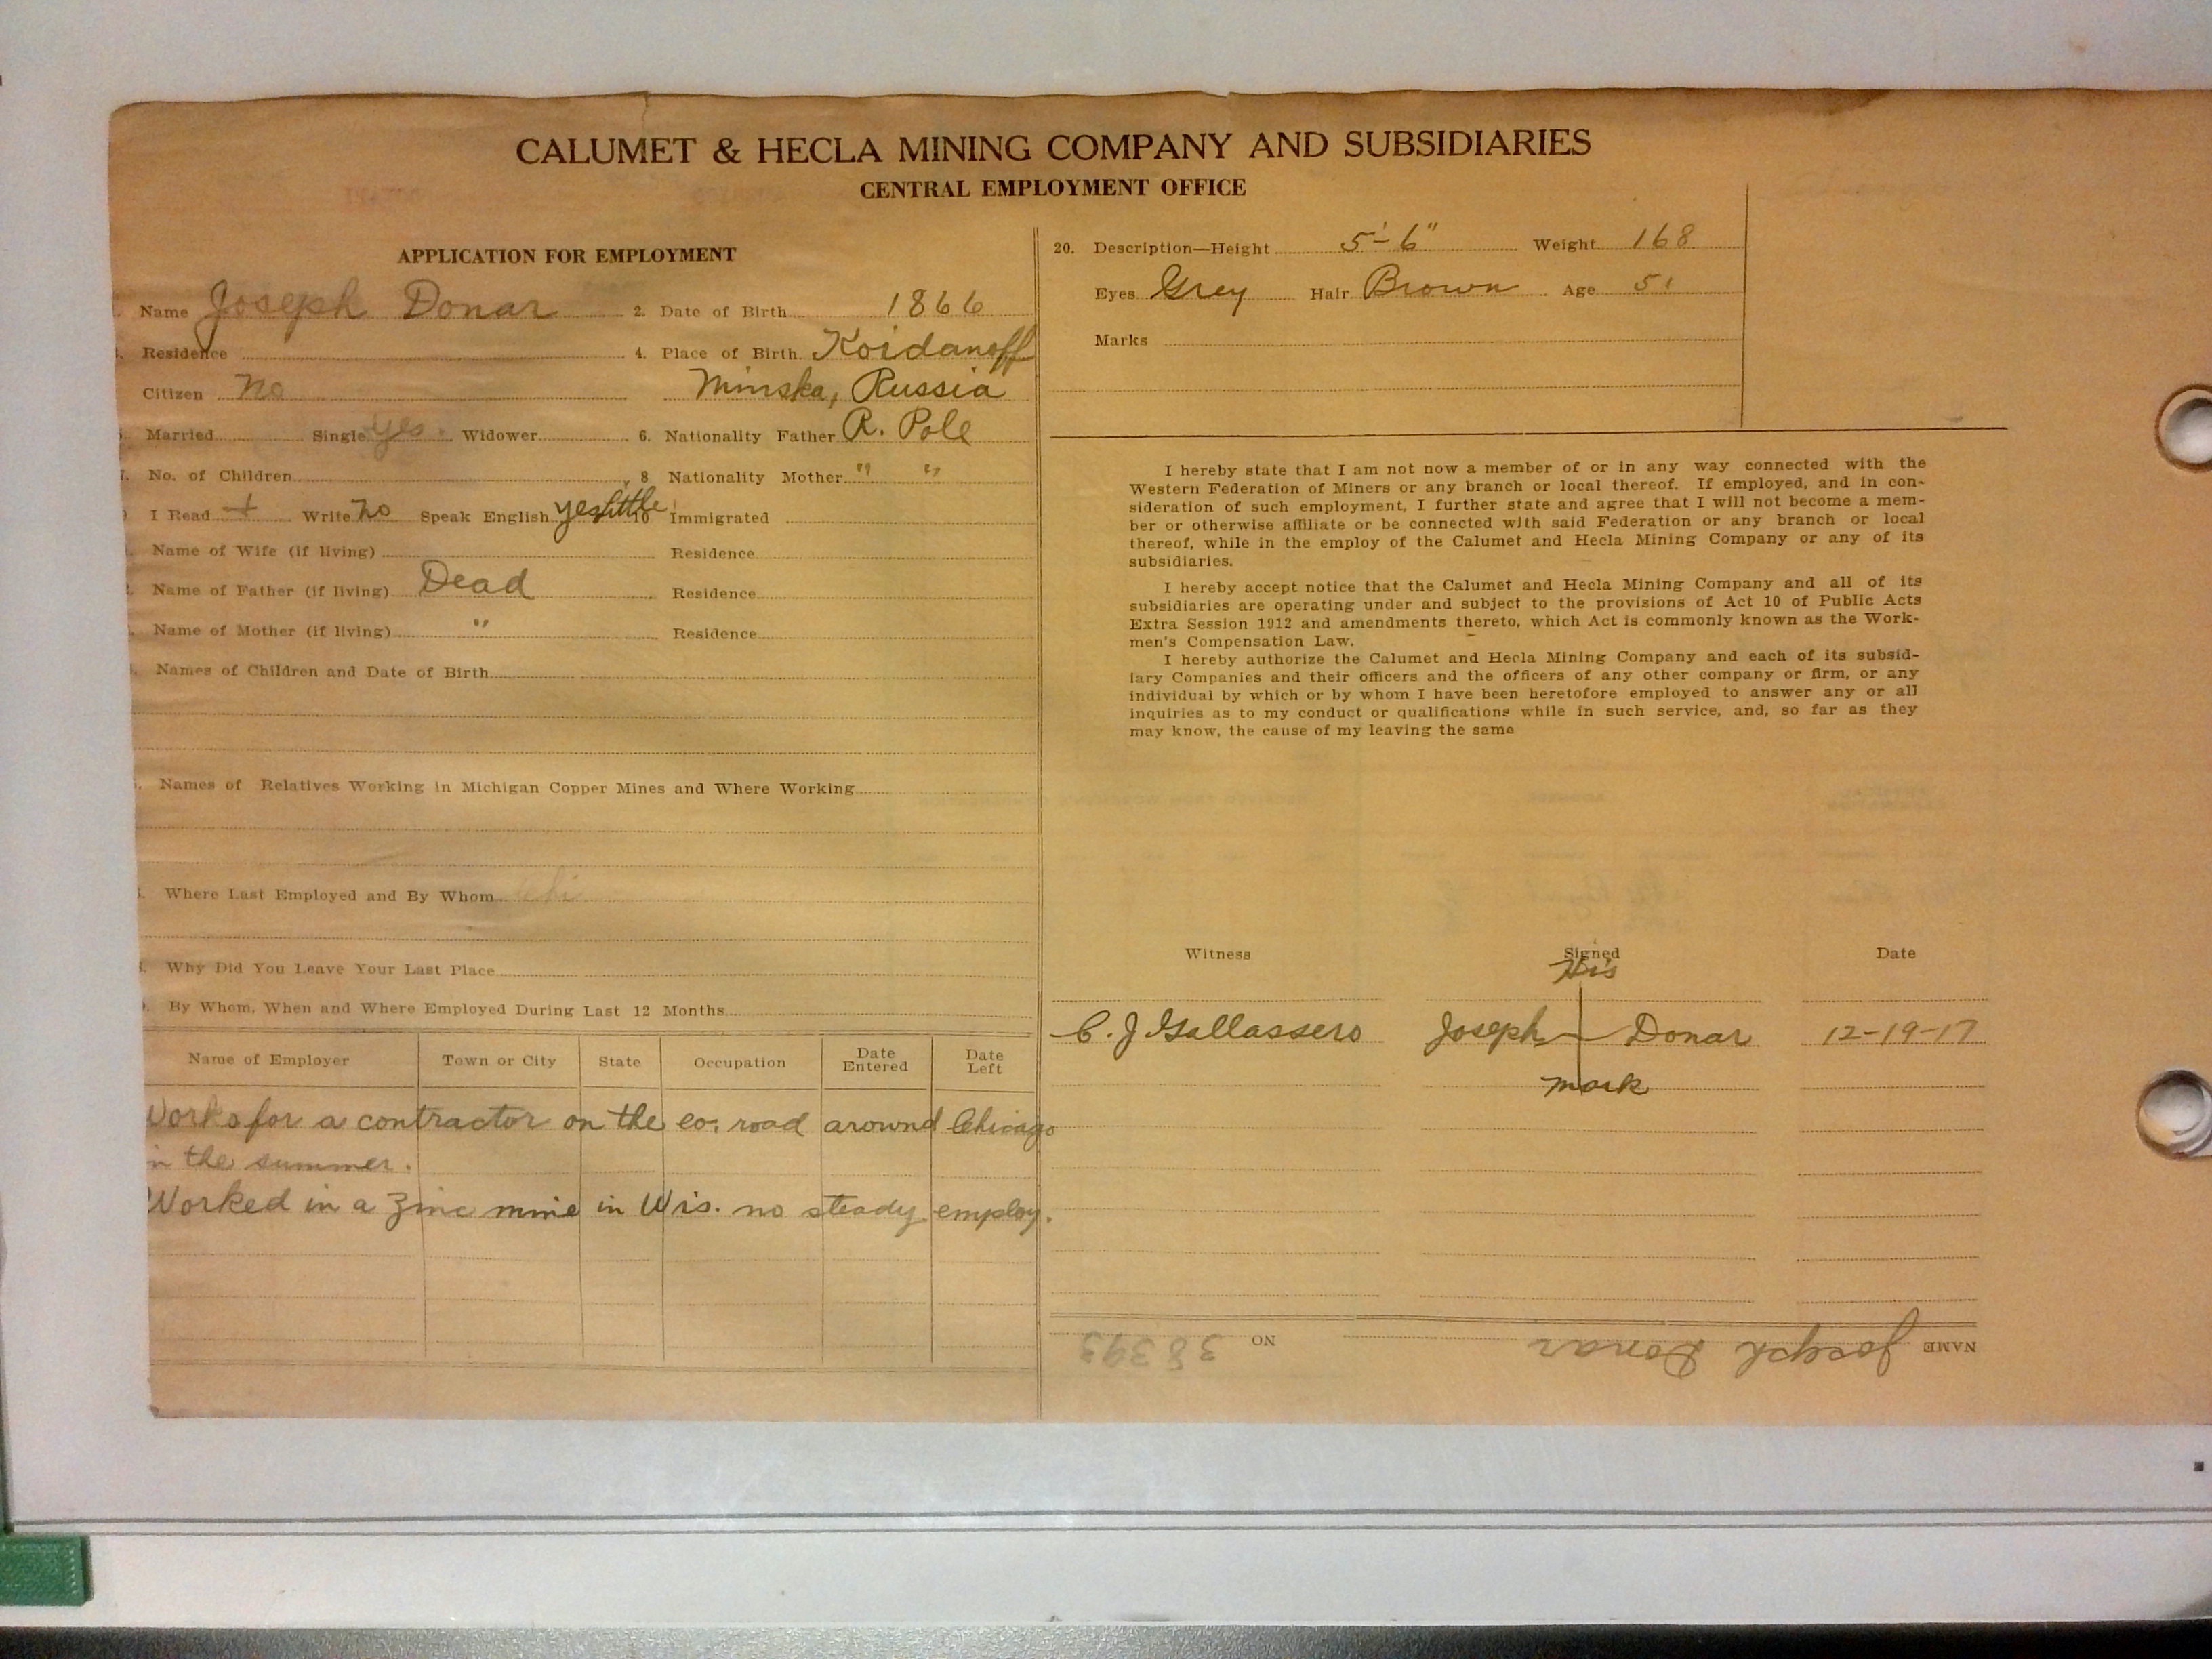 CALUMET & HECLA MINING COMPANY AND SUBSIDIARIES
CENTRAL EMPLOYMENT OFFICE
APPLICATION FOR EMPLOYMENT
Name Joseph Donar 2. Date of Birth 1866
Residence 4. Place of Birth Koidanoff
Citizen No Minska, Russia
Married Single yes. Widower 6. Nationality Father R. Pole
No. of Children 8 Nationality Mother " "
I Read + Write no Speak English yes little 10 Immigrated
Name of Wife (if living) Residence
Name of Father (if living) Dead Residence
Name of Mother (if living) " Residence
Names of Children and Date of Birth
Names of Relatives Working in Michigan Copper Mines and Where Working
Where Last Employed and By Whom Chi
Why Did You Leave Your Last Place
By Whom, When and Where Employed During Last 12 Months
Name of Employer Town or City State Occupation Date Entered Date Left
Works for a contractor on the co. road around Chicago
in the summer.
Worked in a zinc mine in Wis. no steady employ.
20. Description—Height 5'-6" Weight 168
Eyes Grey Hair Brown Age 51
Marks
I hereby state that I am not now a member of or in any way connected with the
Western Federation of Miners or any branch or local thereof. If employed, and in con-
sideration of such employment, I further state and agree that I will not become a mem-
ber or otherwise affiliate or be connected with said Federation or any branch or local
thereof, while in the employ of the Calumet and Hecla Mining Company or any of its
subsidiaries.
I hereby accept notice that the Calumet and Hecla Mining Company and all of its
subsidiaries are operating under and subject to the provisions of Act 10 of Public Acts
Extra Session 1912 and amendments thereto, which Act is commonly known as the Work-
men's Compensation Law.
I hereby authorize the Calumet and Hecla Mining Company and each of its subsid-
iary Companies and their officers and the officers of any other company or firm, or any
individual by which or by whom I have been heretofore employed to answer any or all
inquiries as to my conduct or qualifications while in such service, and, so far as they
may know, the cause of my leaving the same
Witness Signed Date
His
C. J. Gallassero Joseph Donar 12-19-17
mark
NAME Joseph Donar NO 38393